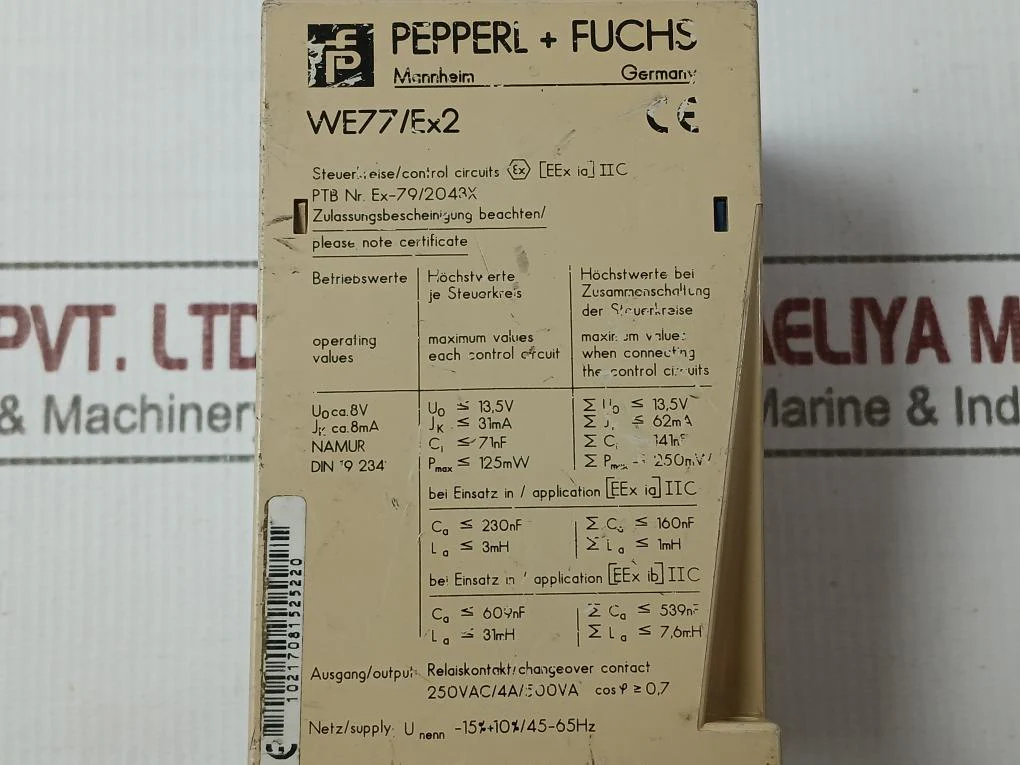 PEPPERL + FUCHS
Mannheim Germany
WE77/Ex2 CE
Steuerkreise/control circuits Ex [EEx ia] IIC
PTB Nr. Ex-79/2043X
Zulassungsbescheinigung beachten/
please note certificate
Betriebswerte
Höchstwerte
je Steuerkreis
Höchstwerte bei
Zusammenschaltung
der Steuerkreise
operating
values
maximum values
each control circuit
maximum values
when connecting
the control circuits
U₀ ca. 8V
Jₖ ca. 8mA
NAMUR
DIN 19 234
U₀ ≤ 13,5V
Jₖ ≤ 31mA
Cᵢ ≤ 71nF
Pmax ≤ 125mW
Σ U₀ ≤ 13,5V
Σ Jₖ ≤ 62mA
Σ Cᵢ 141nF
Σ Pmax ≤ 250mW
bei Einsatz in / application [EEx ia] IIC
Cₐ ≤ 230nF
Lₐ ≤ 3mH
Σ Cₐ ≤ 160nF
Σ Lₐ ≤ 1mH
bei Einsatz in / application [EEx ib] IIC
Cₐ ≤ 609nF
Lₐ ≤ 31mH
Σ Cₐ ≤ 539nF
Σ Lₐ ≤ 7,6mH
Ausgang/output: Relaiskontakt/changeover contact
250VAC/4A/500VA cos φ ≥ 0,7
Netz/supply: U nenn -15%+10%/45-65Hz
1021708152522​0
PVT. LTD
& Machinery
AELIYA M
Marine & Ind